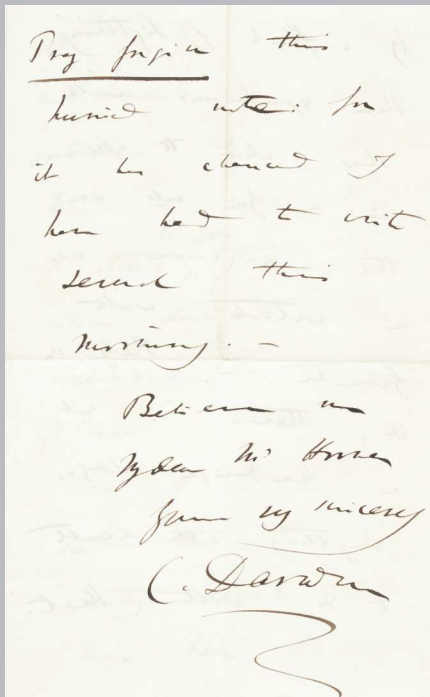 Pray forgive this
hurried note: for
it has chanced I
have had to write
several this
morning. —
Believe me
My dear Mr Horner
Yours very sincerely
C. Darwin